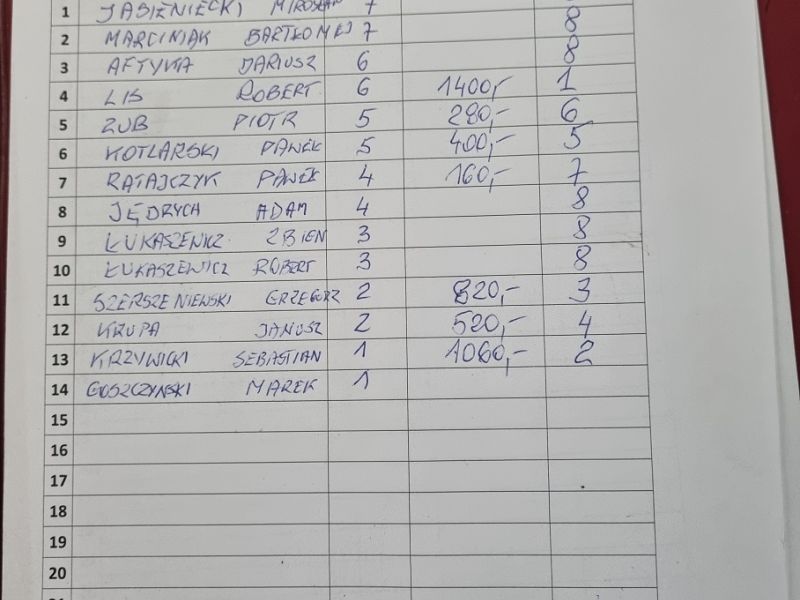 1 JASIENIECKI MIROSŁAW 7 8
2 MARCINIAK BARTŁOMIEJ 7 8
3 AFTYKA DARIUSZ 6 8
4 LIS ROBERT 6 1400,- 1
5 ZUB PIOTR 5 280,- 6
6 KOTLARSKI PAWEŁ 5 400,- 5
7 RATAJCZYK PAWEŁ 4 160,- 7
8 JĘDRYCH ADAM 4 8
9 ŁUKASZEWICZ ZBIGN 3 8
10 ŁUKASZEWICZ ROBERT 3 8
11 SZERSZENIEWSKI GRZEGORZ 2 820,- 3
12 KRUPA JANUSZ 2 520,- 4
13 KRZYWICKI SEBASTIAN 1 1060,- 2
14 GOSZCZYŃSKI MAREK 1
15
16
17
18
19
20